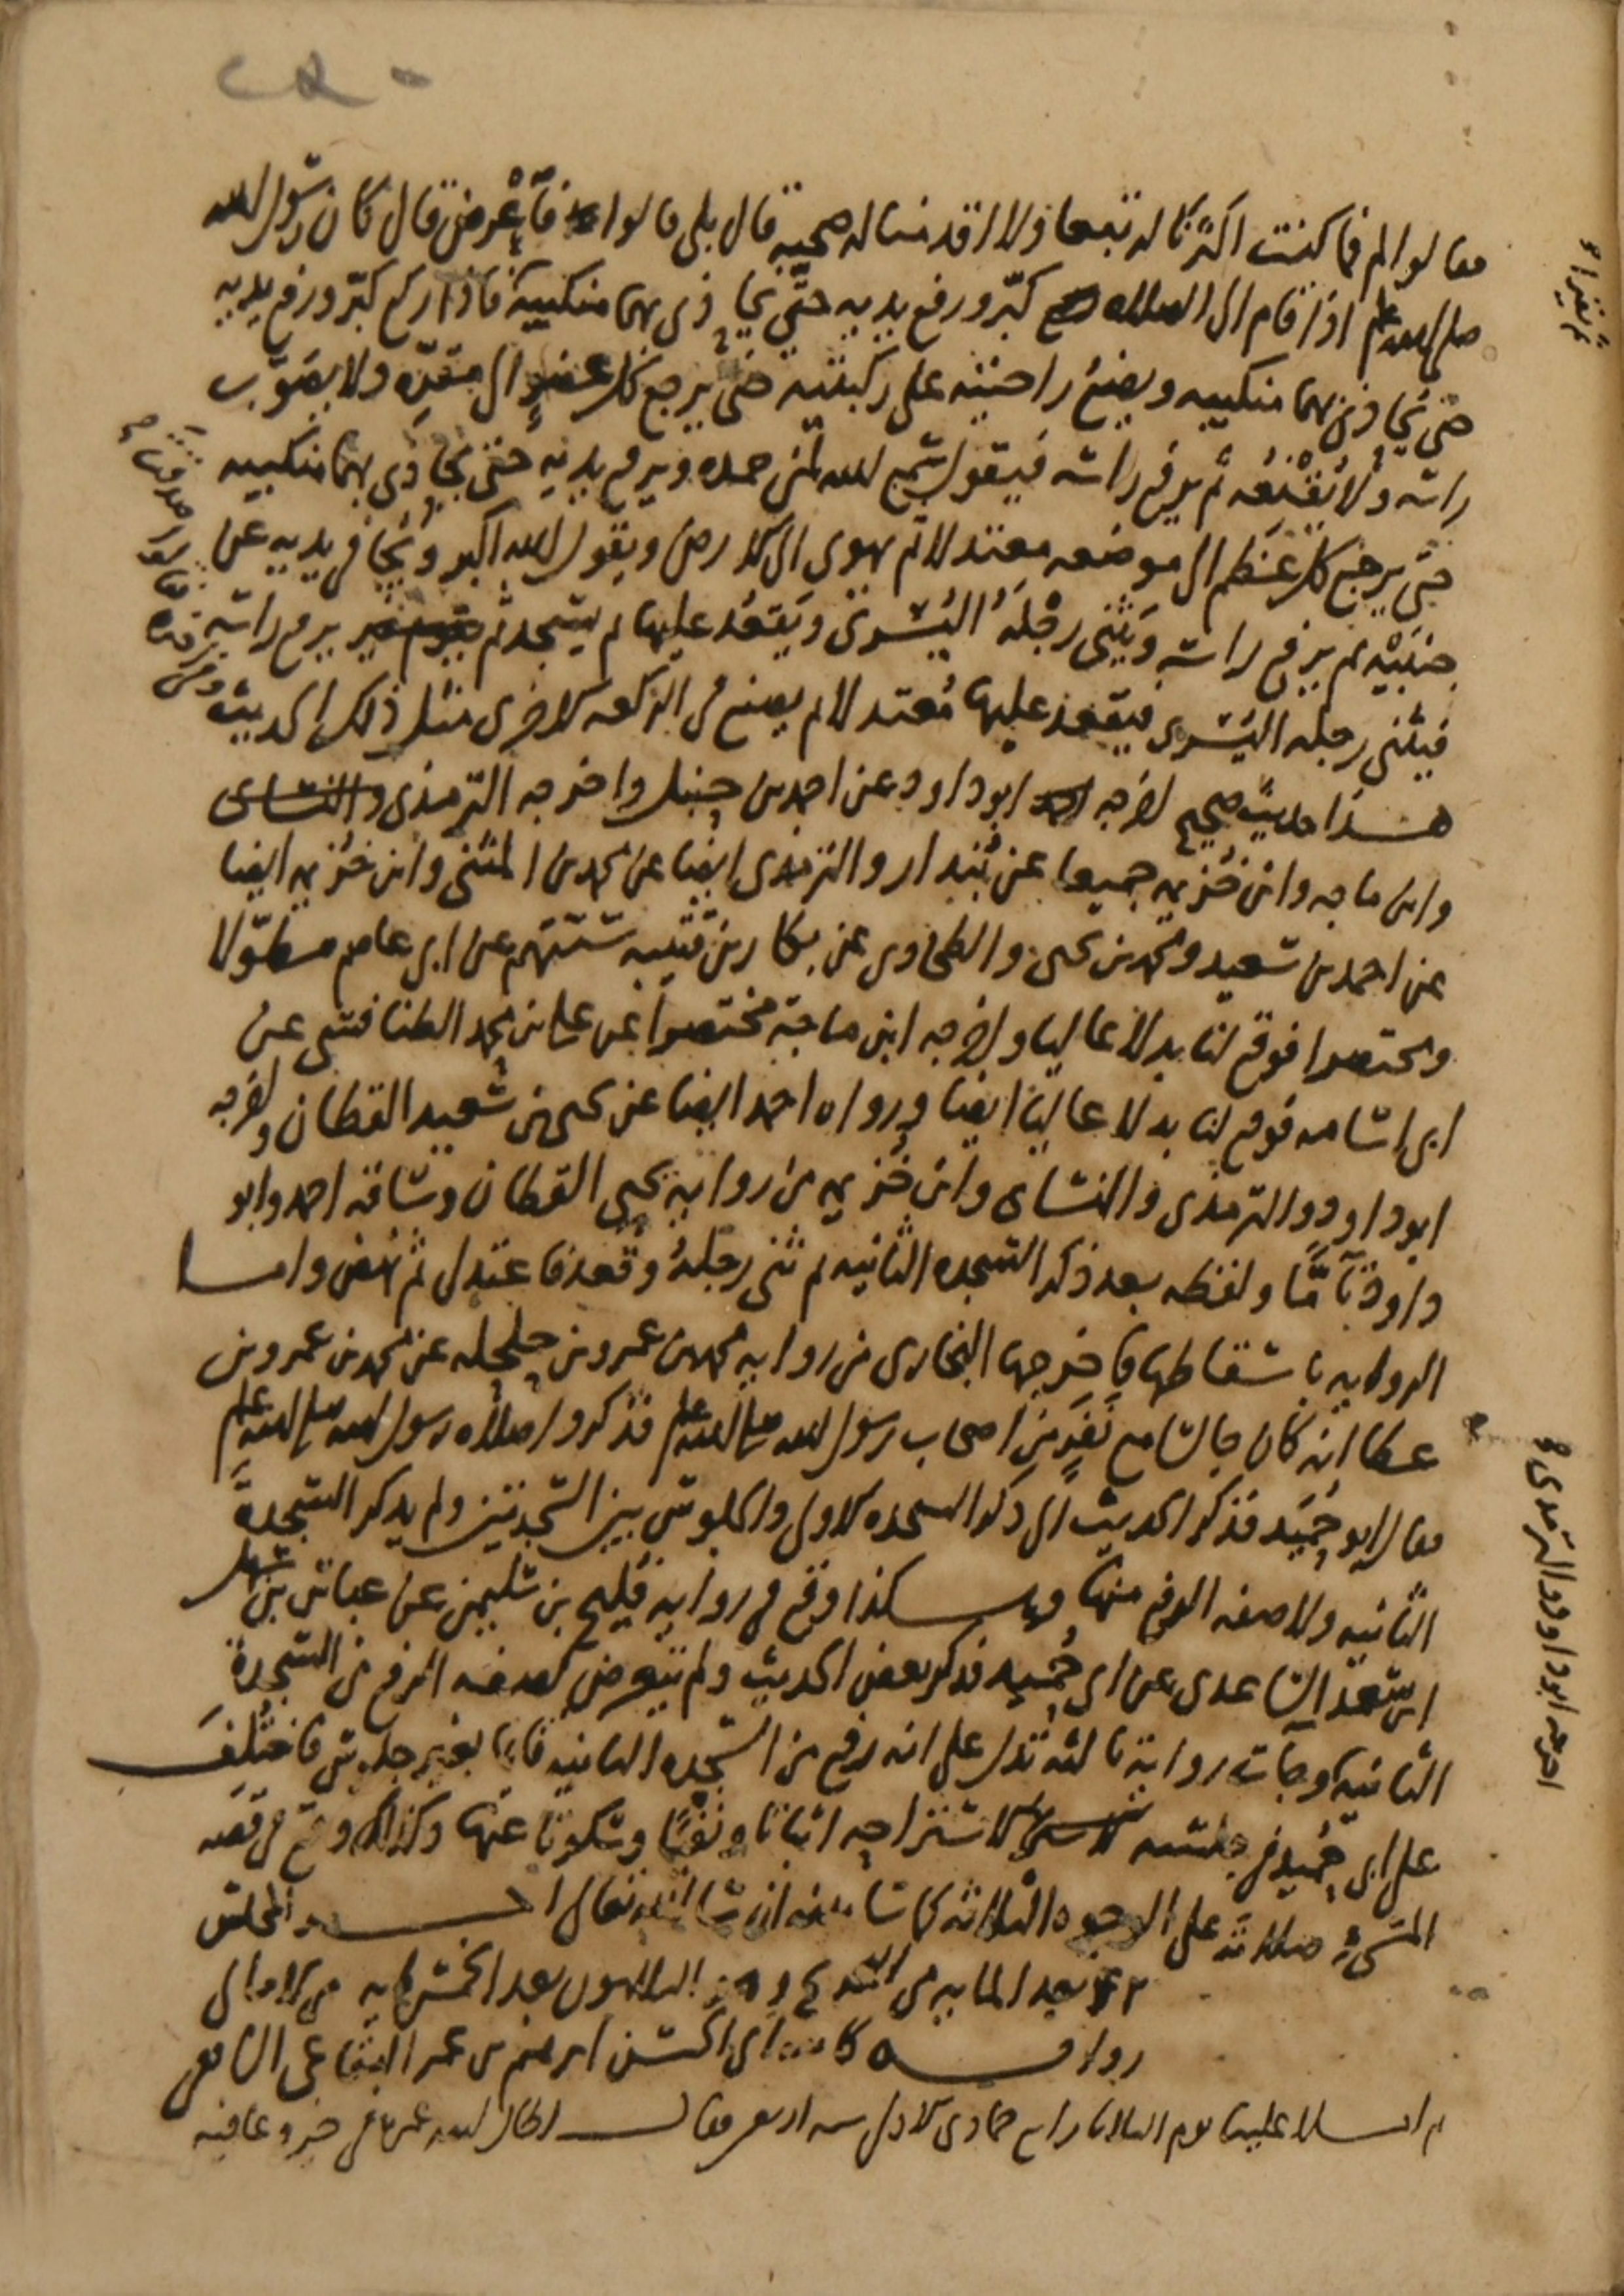 فقالوا لم فما كنت اكثرنا له تبعا ولا اقدمنا له صحبة قال بلى قالوا فأعرض قال كان رسول الله
صلى الله عليه وسلم اذا قام الى الصلاه كبّر ورفع يديه حتى يحاذي بهما منكبيه فاذا ركع كبّر ورفع يديه
حتى يحاذي بهما منكبيه ويضع راحتيه على ركبتيه حتى يرجع كل عضو الى مقرّه ولا يصوّب
راسه ولا يُقنعه ثم يرفع راسه فيقول سمع الله لمن حمده ويرفع يديه حتى يحاذي بهما منكبيه
حتى يرجع كل عظم الى موضعه معتدلا ثم يهوى الى الارض ويقول الله اكبر ويُجافى يديه عن
جنبيه ثم يرفع راسه ويثنى رجله اليسرى ويقعد عليها ثم يسجد ثم يرفع راسه
فيثنى رجله اليسرى فيقعد عليها مُعتدلا ثم يصنع فى الركعه الاخرى مثل ذلك الحديث
هذا حديث صحيح اخرجه ابو داود عن احمد بن حنبل واخرجه الترمذى والنساى
وابن ماجه وابن خُزيمه جميعا عن بُندار والترمذى ايضا عن محمد بن المثنى وابن خزيمه ايضا
عن احمد بن سعيد ومحمد بن يحيى والطحاوى عن بكار بن قتيبه ستتهم عن ابى عاصم مطوّلا
ومختصرا فوقع لنا بدلا عاليا واخرجه ابن ماجة مختصرا عن على بن محمد الطنافسى عن
ابى اسامه فوقع لنا بدلا عاليا ايضا ورواه احمد ايضا عن يحيى بن سعيد القطان واخرجه
ابو داود والترمذى والنساى وابن خُزيمه من رواية يحيى القطان وساقه احمد وابو
داود تآمًّا ولفظه بعد ذكر السجده الثانيه ثم ثنى رجلهُ وقعد فاعتدل ثم نهض واما
الروايه باسقاطها فاخرجها البخارى من روايه محمد بن عمرو بن حلحله عن محمد بن عمرو بن
عطا انه كان جالسا مع نفر من اصحاب رسول الله صلى الله عليه وسلم فذكروا صلاه رسول الله صلى الله عليه وسلم
فقال ابو حُميد فذكر الحديث الى ذكر السجده الاولى والجلوس بين السجدتين ولم يذكر السجدة
الثانيه ولا صفه الرفع منها وهكذا وقع فى رواية فليح بن سليمن عن عباس بن سهل
ابن سعد الساعدى عن ابى حُميد فذكر بعض الحديث ولم يتعرض لصفه الرفع من السجدة
الثانيه وجآت رواية ثالثه تدل على انه رفع من السجده الثانيه قايما بغير جلوس فاختُلِف
على ابى حُميد فى جلسه الاستراحه اثباتا ونفيًا وسكوتا عنها وكذلك وقع فى قصه
المسىء صلاته على الوجوه الثلاثه كما سا ان شا الله تعالى اخر المجلس
بعد المايه من التخريج وهو الثلاثون بعد الخمسمايه من الامالى
روايه كاتبه ابى الحسن ابرهيم بن عمر البقاعى الشافعى
ثم املا علينا يوم الثلاثا رابع جمادى الاولى سنه اربعين فقال اطال الله عمره فى خير وعافيه
اخرجه ابو داود والترمذى